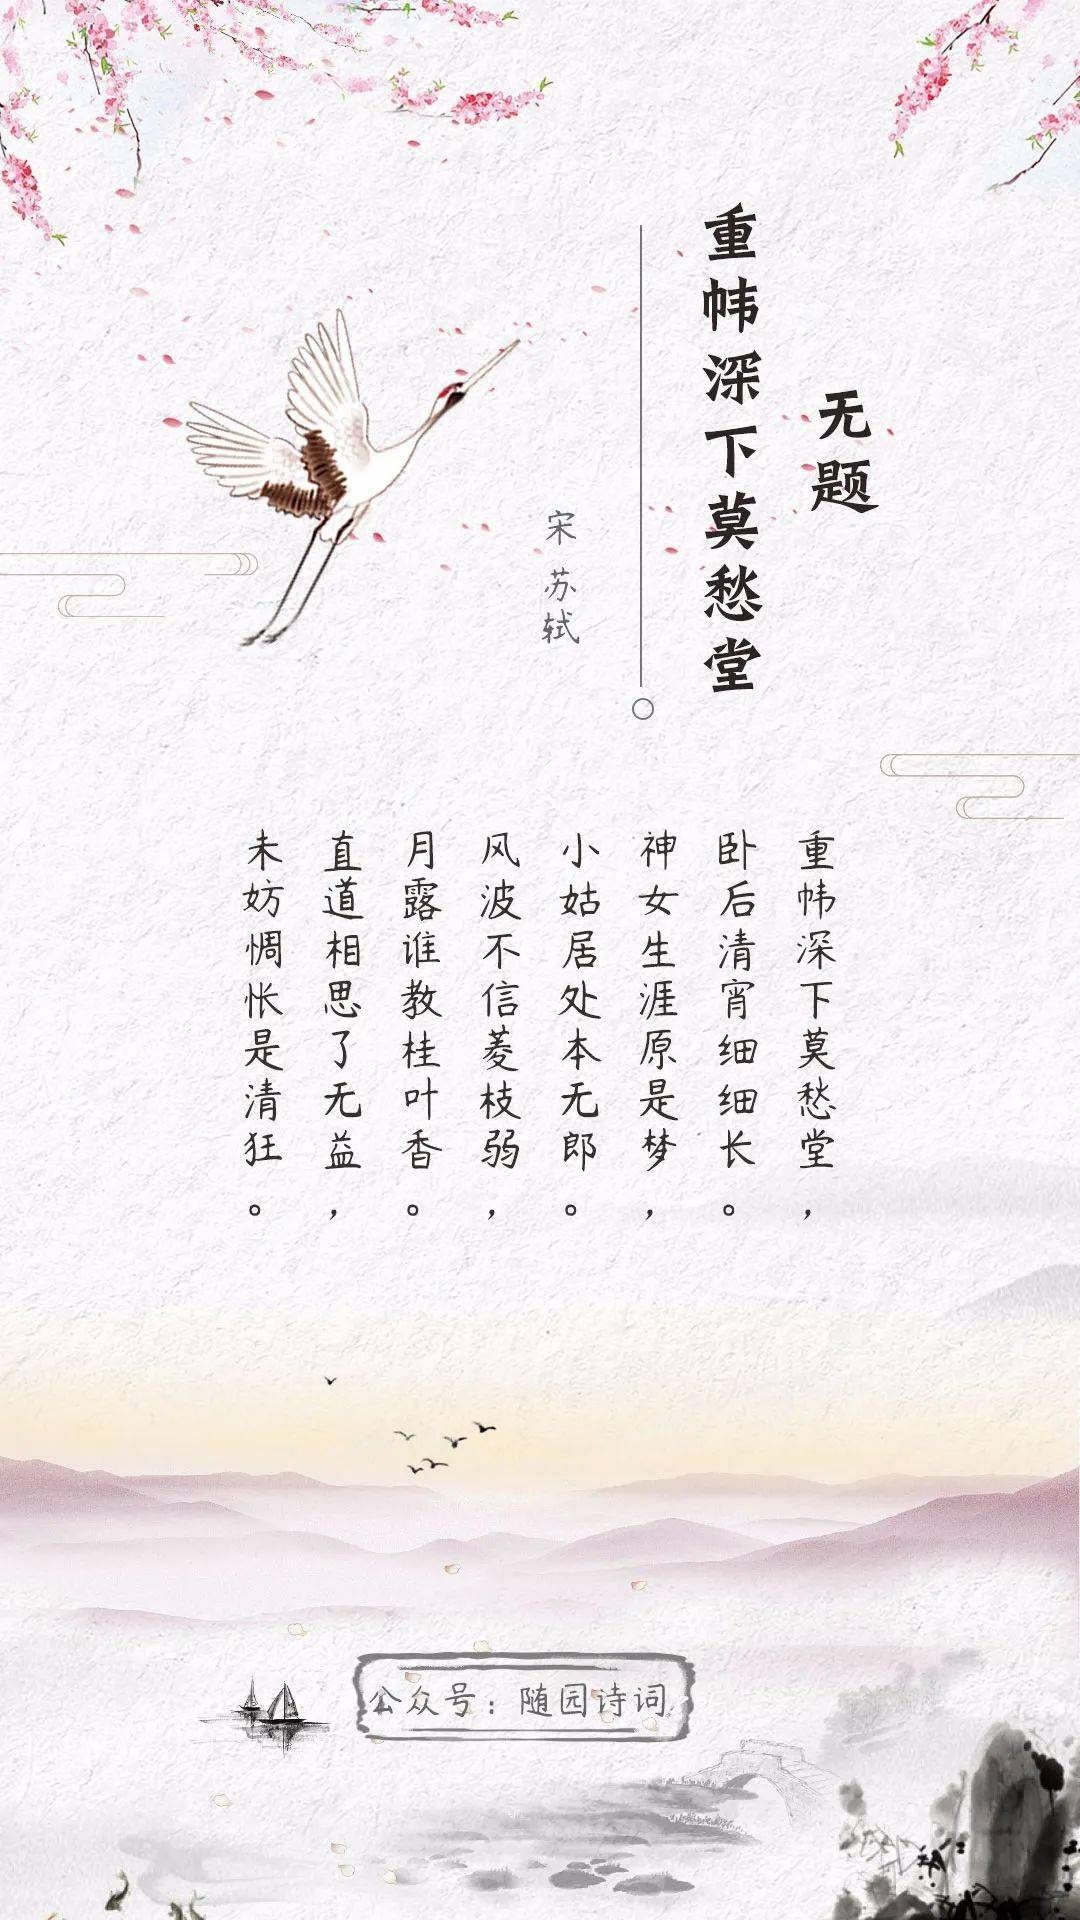 无题
重帏深下莫愁堂
宋 苏轼
重帏深下莫愁堂，
卧后清宵细细长。
神女生涯原是梦，
小姑居处本无郎。
风波不信菱枝弱，
月露谁教桂叶香。
直道相思了无益，
未妨惆怅是清狂。
公众号：随园诗词